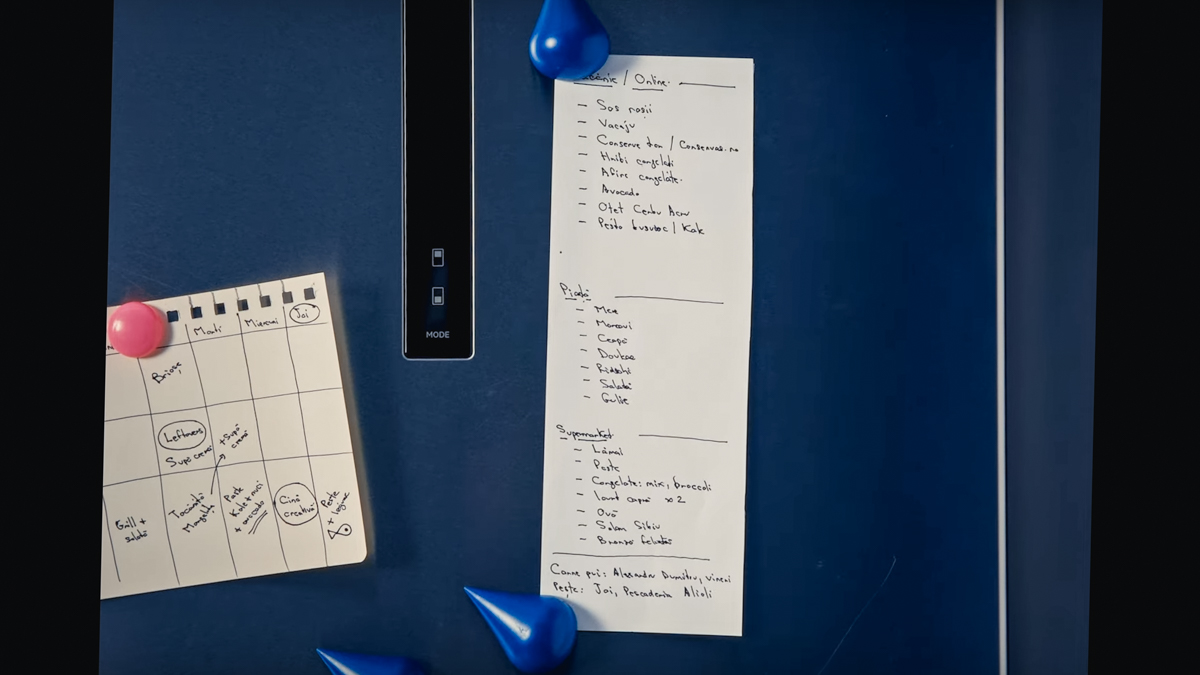 MODE
/ Online
- Sos roșii
- Vacaju
- Conserve ton / Conservas.ro
- Hribi congelati
- Afine congelate
- Avocado
- Oțet
- Pesto busuioc / Kale
Piață
- Mere
- Morcovi
- Ceapă
- Dovleac
- Ridichi
- Salată
- Gulie
Supermarket
- Lămâi
- Paste
- Congelate: mix, broccoli
- Iaurt capră x2
- Ouă
- Salam Sibiu
- Branză feliată
Carne pui: Alexandru Dumitru, vineri
Pește: Joi, Pescaderia Alioli
Marti Miercuri Joi
Brioșe
Leftovers
Supă cremă
+ Supă cremă
Grill + salată
Tocăniță
Paste Kale + nuci + avocado
Cină creativă
Pește + legume